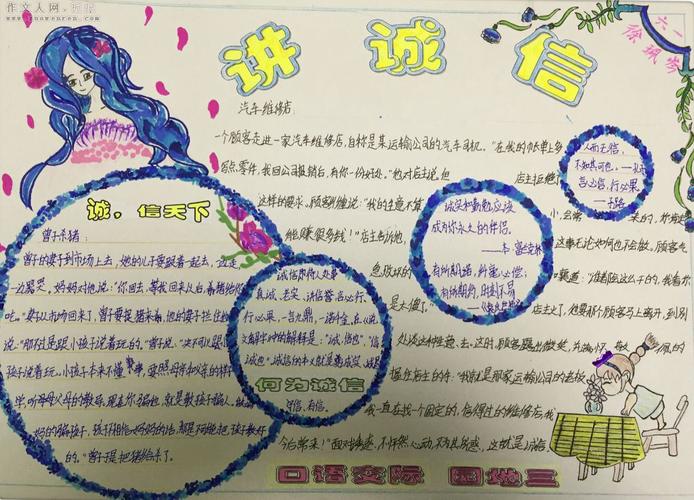 作文人网
讲诚信
六一
徐珮岑
汽车维修店:
一个顾客走进一家汽车维修店,自称是某运输公司的汽车司机。"在我的帐单上多
写点零件,我回公司报销后,有你一份好处。"他对店主说,但
店主拒绝了
这样的要求。顾客纠缠说:"我的生意不算
小,会常
来的,你肯定
能赚很多钱!"店主告诉他,
这事无论如何也不会做。顾客气
急败坏的
嚷道:"谁都会这么干的,我看你
是太傻了。"
店主火了,他要那个顾客马上离开,到别
处谈这种生意去。这时,顾客露出微笑,
满怀
敬
佩的
握住店主的手:"我就是那家运输公司的老板,
我一直在找一个固定的、信得过的维修店,我
今后常来!"面对诱惑,不怦然心动,不为其所惑,
这就是诚信
人而无信,
不知其可也。
言必信,行必果
诚实和勤勉应该
成为你永久的伴侣。
有所期诺,纤毫必偿;
有所期约,时刻不易
诚,信天下
曾子杀猪:
曾子的妻子到市场上去,她的儿子要跟着一起去,一边走
一边哭。妈妈对他说:"你回去,等我回来以后,杀猪给你
吃。"妻子从市场回来了,曾子要捉猪来杀,他的妻子拦住他
说:"那不过是跟小孩子说着玩的。"曾子说:"决不可以跟
小孩子说着玩。小孩子本来不懂事,要照父母的样子
学,听父母的教导。现在你骗他,就是教孩子骗人。做
妈的骗孩子,孩子不相信妈妈的话,那是不可能把孩子教好
的。"曾子于是把猪给杀了。
真诚、老实、讲信誉,言必行、
行必果,一言九鼎,一诺千金。在《说
文解字》中的解释是:"诚,信也","信,
诚也"
何为诚信
守信、有信。
口语交际 园地三